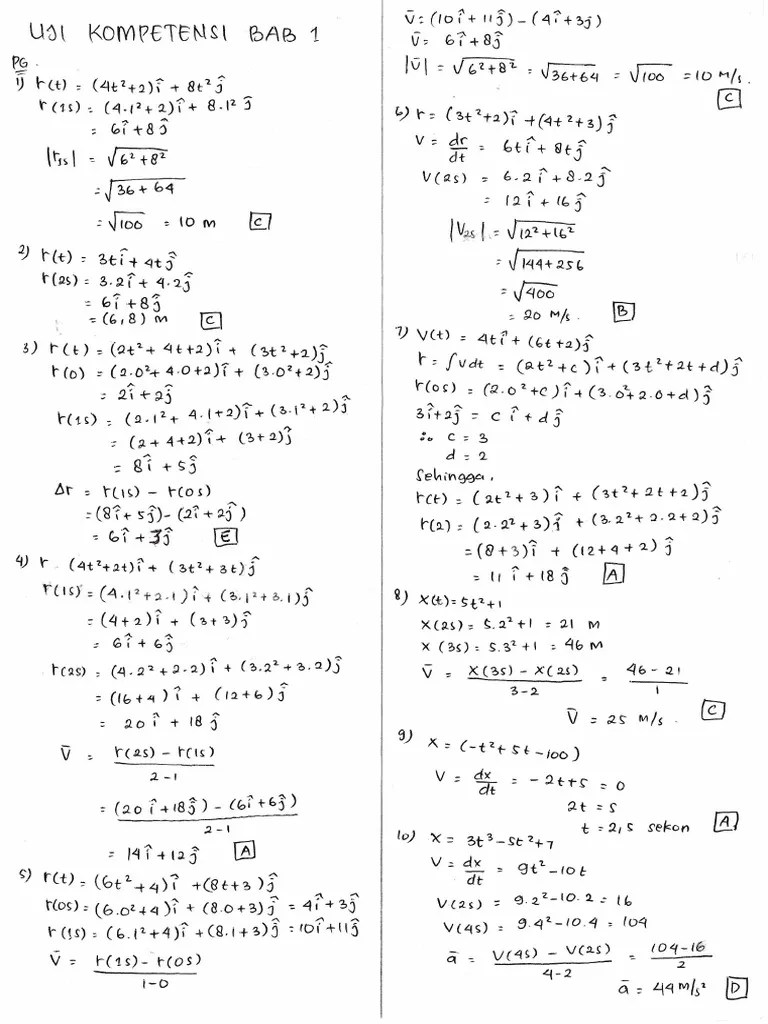 UJI KOMPETENSI BAB 1
PG.
1) r(t) = (4t²+2)î + 8t² ĵ
r(1s) = (4.1²+2)î + 8.1² ĵ
= 6î + 8ĵ
|r₁ₛ| = √6²+8²
= √36+64
= √100 = 10 m [C]
2) r(t) = 3tî + 4tĵ
r(2s) = 3.2î + 4.2ĵ
= 6î + 8ĵ
= (6,8) m [C]
3) r(t) = (2t²+4t+2)î + (3t²+2)ĵ
r(0) = (2.0²+4.0+2)î + (3.0²+2)ĵ
= 2î + 2ĵ
r(1s) = (2.1²+4.1+2)î + (3.1²+2)ĵ
= (2+4+2)î + (3+2)ĵ
= 8î + 5ĵ
Δr = r(1s) - r(0s)
= (8î + 5ĵ) - (2î + 2ĵ)
= 6î + 3ĵ [E]
4) r (4t²+2t)î + (3t²+3t)ĵ
r(1s) = (4.1²+2.1)î + (3.1²+3.1)ĵ
= (4+2)î + (3+3)ĵ
= 6î + 6ĵ
r(2s) = (4.2²+2.2)î + (3.2²+3.2)ĵ
= (16+4)î + (12+6)ĵ
= 20î + 18ĵ
v̄ = r(2s) - r(1s)
2-1
= (20î+18ĵ) - (6î+6ĵ)
2-1
= 14î + 12ĵ [A]
5) r(t) = (6t²+4)î + (8t+3)ĵ
r(0s) = (6.0²+4)î + (8.0+3)ĵ = 4î + 3ĵ
r(1s) = (6.1²+4)î + (8.1+3)ĵ = 10î + 11ĵ
v̄ = r(1s) - r(0s)
1-0
v̄ = (10î + 11ĵ) - (4î + 3ĵ)
v̄ = 6î + 8ĵ
|v̄| = √6²+8² = √36+64 = √100 = 10 m/s.
[C]
6) r = (3t²+2)î + (4t²+3)ĵ
v = dr/dt = 6tî + 8tĵ
v(2s) = 6.2î + 8.2ĵ
= 12î + 16ĵ
|v₂ₛ| = √12²+16²
= √144+256
= √400
= 20 m/s. [B]
7) v(t) = 4tî + (6t+2)ĵ
r = ∫vdt = (2t²+c)î + (3t²+2t+d)ĵ
r(0s) = (2.0²+c)î + (3.0²+2.0+d)ĵ
3î+2ĵ = cî + dĵ
∴ c = 3
d = 2
Sehingga,
r(t) = (2t²+3)î + (3t²+2t+2)ĵ
r(2) = (2.2²+3)î + (3.2²+2.2+2)ĵ
= (8+3)î + (12+4+2)ĵ
= 11î + 18ĵ [A]
8) x(t) = 5t²+1
x(2s) = 5.2²+1 = 21 m
x(3s) = 5.3²+1 = 46 m
v̄ = x(3s) - x(2s) = 46-21
3-2 1
v̄ = 25 m/s. [C]
9) x = (-t²+5t-100)
v = dx/dt = -2t+5 = 0
2t = 5
t = 2,5 sekon [A]
10) x = 3t³-5t²+7
v = dx/dt = 9t²-10t
v(2s) = 9.2²-10.2 = 16
v(4s) = 9.4²-10.4 = 104
ā = v(4s) - v(2s) = 104-16
4-2 2
ā = 44 m/s² [D]